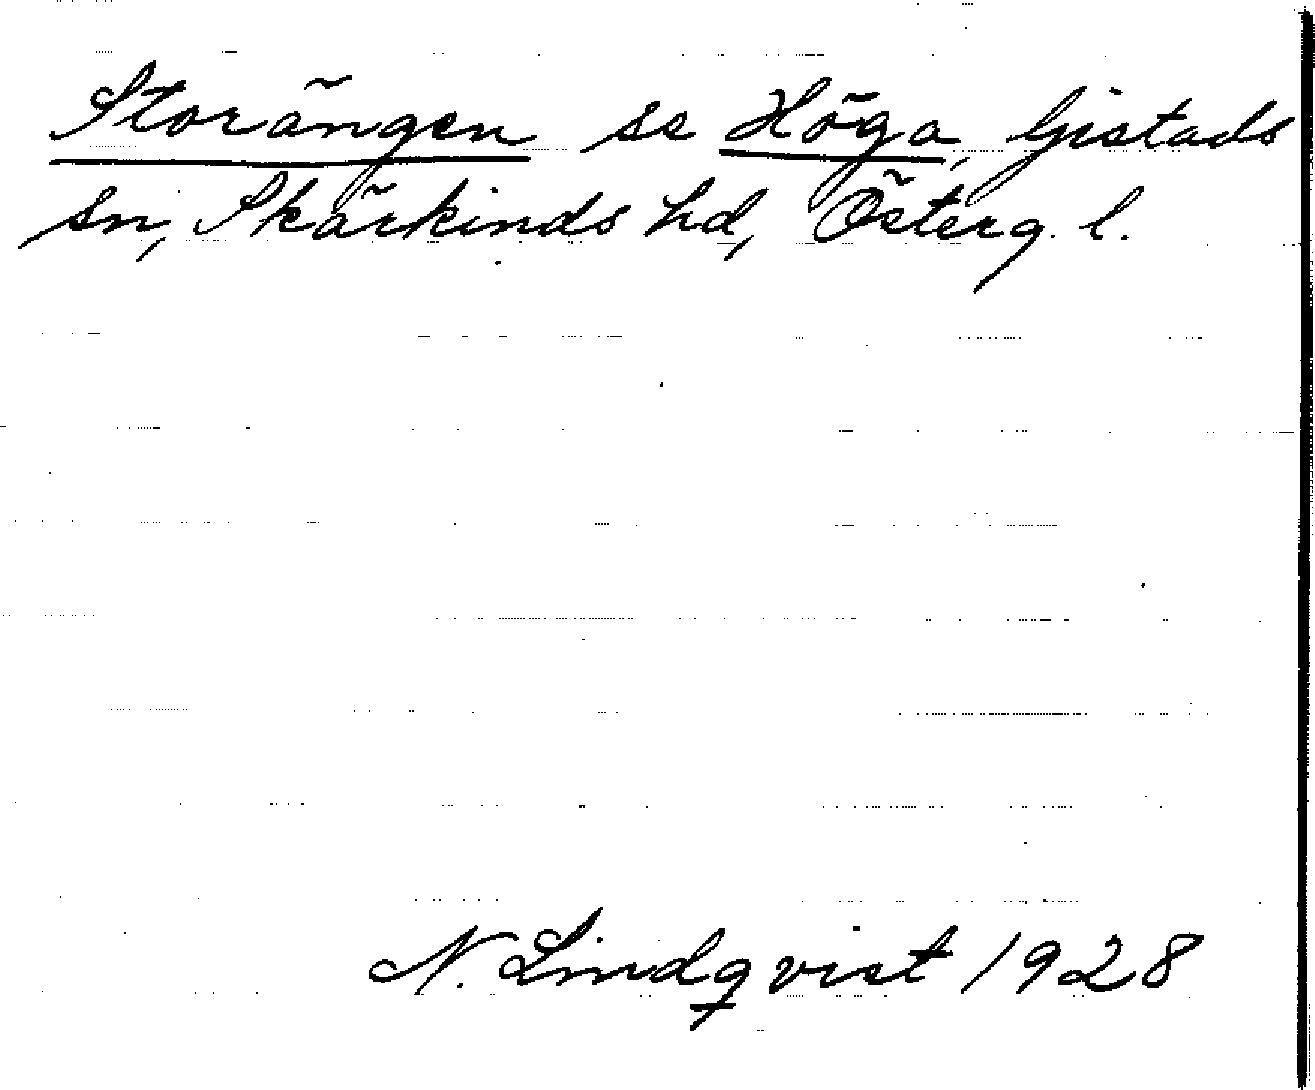 Storängen se Höga, Gistads
sn, Skärkinds hd, Österg. l.
N. Lindqvist 1928